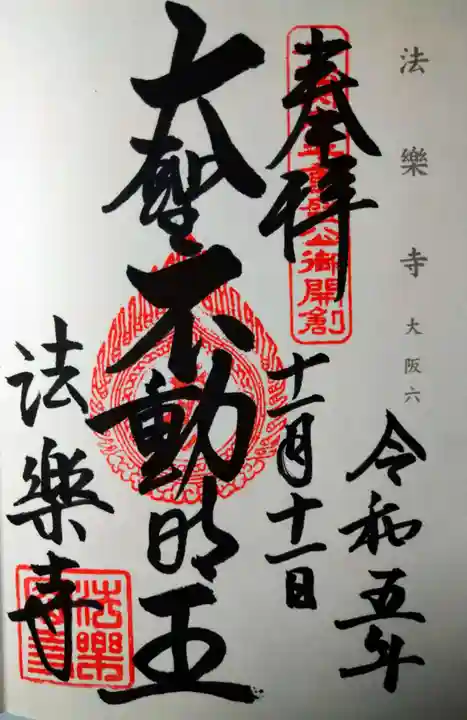 法樂寺 大阪六
奉拝
令和五年
十一月十一日
大聖不動明王
法樂寺